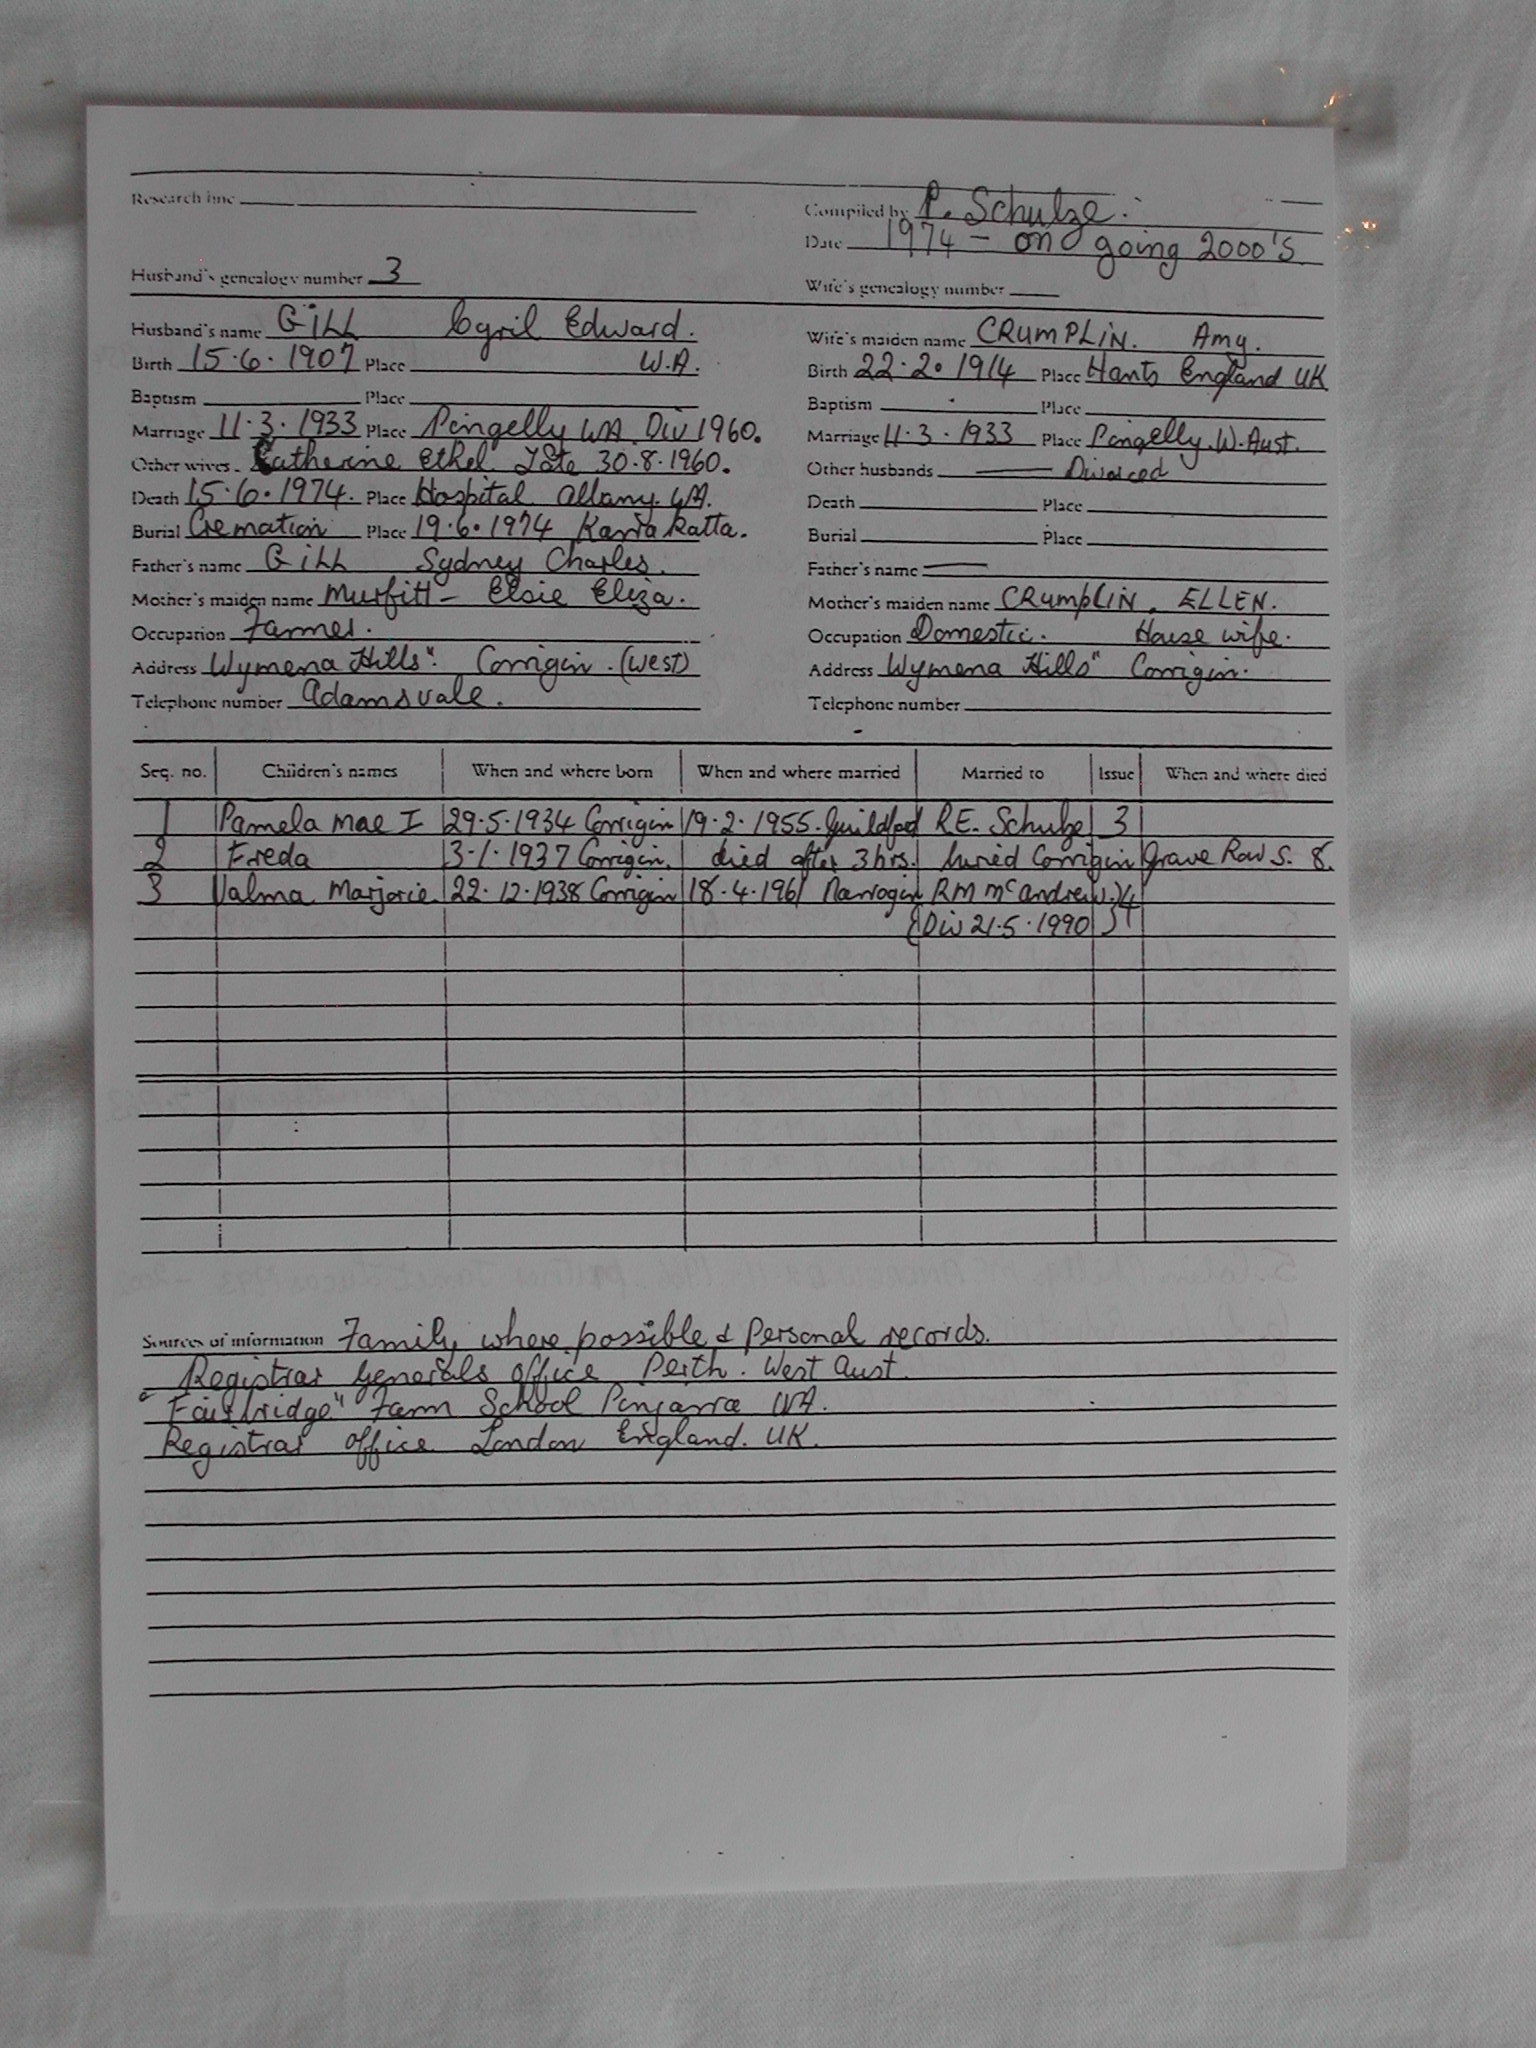 Research line
Compiled by P. Schulze.
Date 1974 - on going 2000's
Husband's genealogy number 3
Wife's genealogy number
Husband's name GILL Cyril Edward.
Wife's maiden name CRUMPLIN. Amy.
Birth 15.6.1907 Place W.A.
Birth 22.2.1914 Place Hants England UK
Baptism Place
Baptism Place
Marriage 11.3.1933 Place Pingelly WA. Div 1960.
Marriage 11.3.1933 Place Pingelly. W. Aust.
Other wives Catherine Ethel 30.8.1960.
Other husbands Divorced
Death 15.6.1974. Place Hospital Albany. WA.
Death Place
Burial Cremation Place 19.6.1974 Karrakatta.
Burial Place
Father's name GILL Sydney Charles.
Father's name
Mother's maiden name Murfitt - Elsie Eliza.
Mother's maiden name CRUMPLIN. ELLEN.
Occupation Farmer.
Occupation Domestic. House wife.
Address Wymena Hills". Corrigin. (West)
Address Wymena Hills" Corrigin.
Telephone number Adamsvale.
Telephone number
Seq. no. Children's names When and where born When and where married Married to Issue When and where died
1 Pamela Mae I 29.5.1934 Corrigin 19.2.1955. Guildford R.E. Schulze 3
2 Freda 3.1.1937 Corrigin. died after 3 hrs. buried Corrigin Grave Row S. 8.
3 Valma Marjorie 22.12.1938 Corrigin 18.4.1961 Narrogin RM McAndrew.) 4
(Div 21.5.1990)
Sources of information Family where possible & Personal records.
Registrar Generals office Perth. West Aust.
"Fairbridge" Farm School Pinjarra WA.
Registrar office London England. UK.